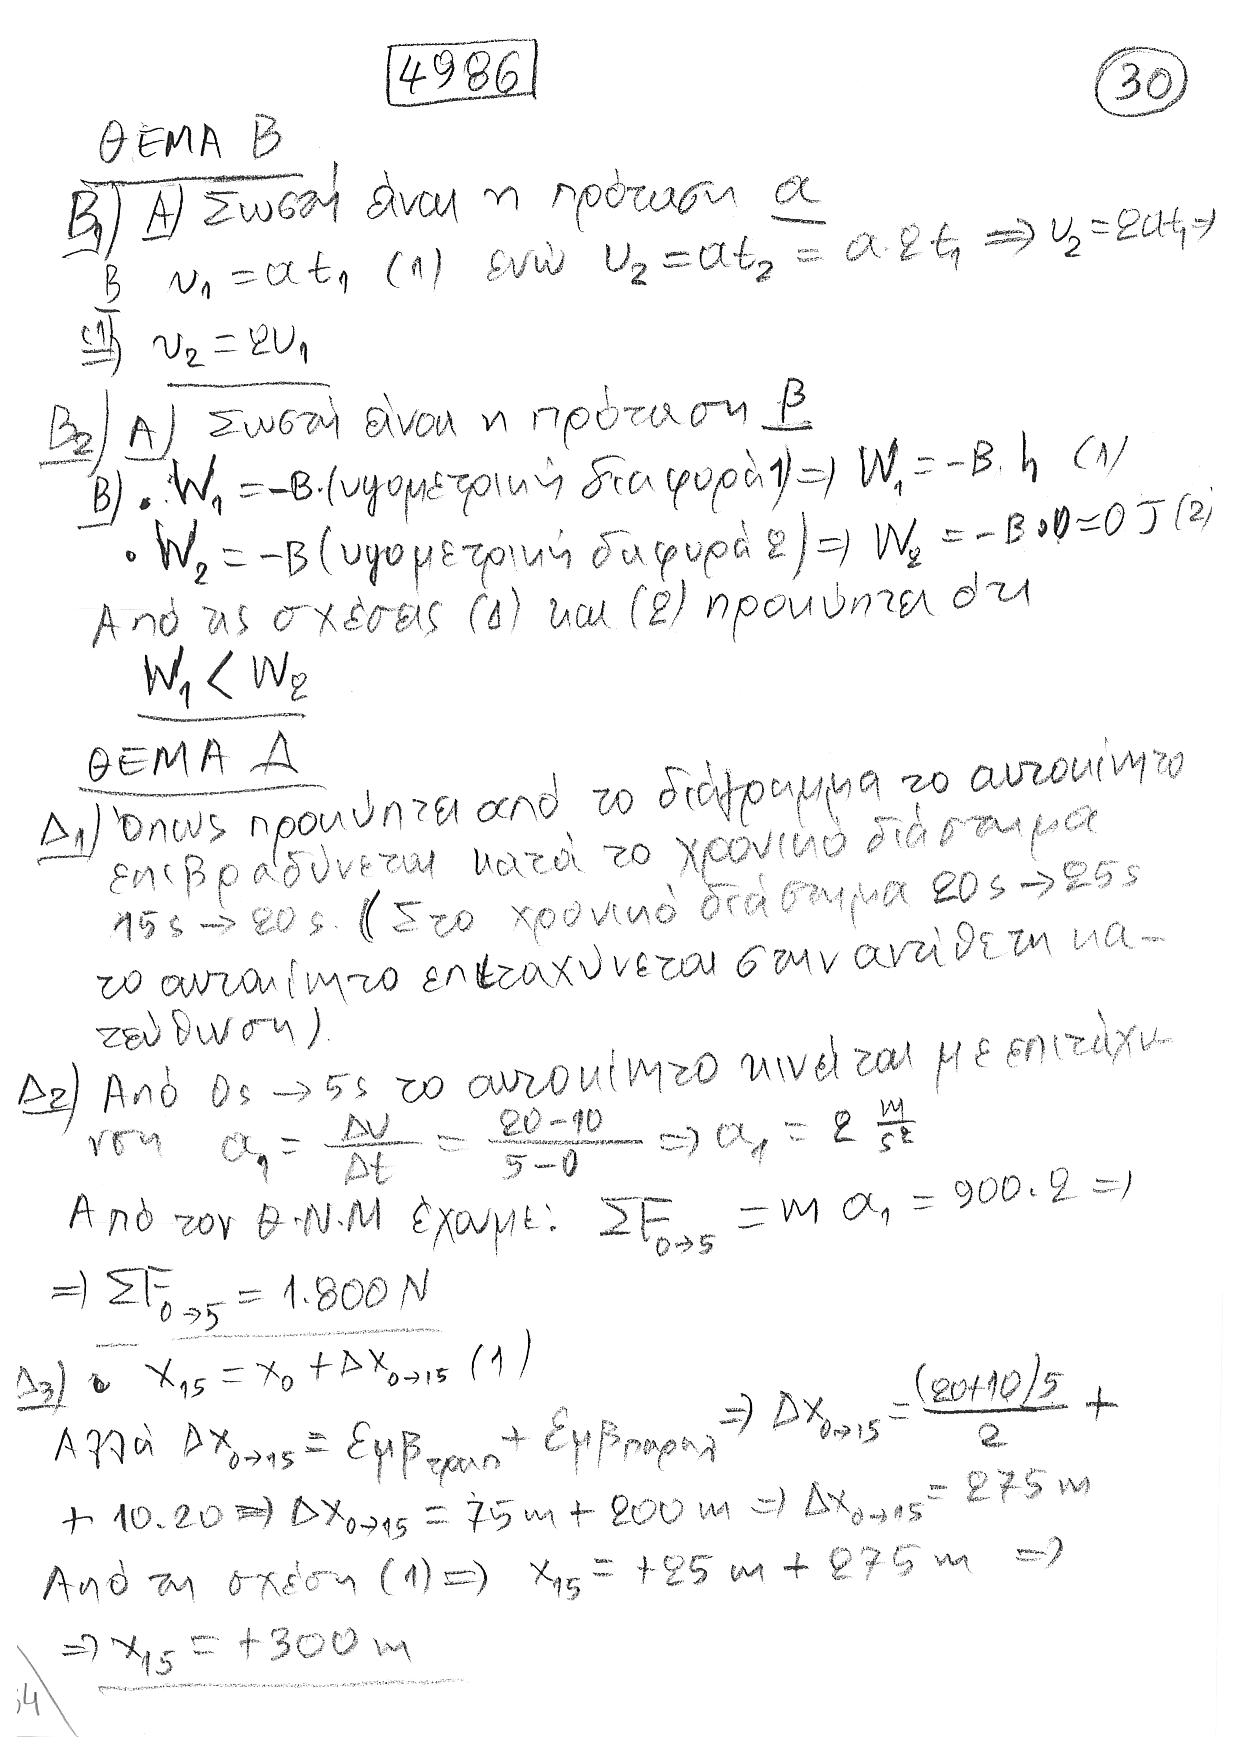 4986
30
ΘΕΜΑ Β
Β1) Α) Σωστή είναι η πρόταση α
Β υ1 = αt1 (1) ενώ υ2 = αt2 = α·2t1 ⇒ υ2 = 2αt1 ⇒
(1)⇒ υ2 = 2υ1
Β2) Α) Σωστή είναι η πρόταση β
Β) • W1 = -Β·(υψομετρική διαφορά 1) ⇒ W1 = -Β·h (1)
• W2 = -Β(υψομετρική διαφορά 2) ⇒ W2 = -Β·0 = 0 J (2)
Από τις σχέσεις (1) και (2) προκύπτει ότι
W1 < W2
ΘΕΜΑ Δ
Δ1) Όπως προκύπτει από το διάγραμμα το αυτοκίνητο
επιβραδύνεται κατά το χρονικό διάστημα
15s → 20s. (Στο χρονικό διάστημα 20s → 25s
το αυτοκίνητο επιταχύνεται στην αντίθετη κα-
τεύθυνση).
Δ2) Από 0s → 5s το αυτοκίνητο κινείται με επιτάχυ-
νση α1 = ΔV/Δt = (20-10)/(5-0) ⇒ α1 = 2 m/s²
Από τον Θ.Ν.Μ έχουμε: ΣF0→5 = m α1 = 900·2 ⇒
⇒ ΣF0→5 = 1.800 N
Δ3) • x15 = x0 + Δx0→15 (1)
Αλλά Δx0→15 = Εμβτραπ + Εμβπαραλ ⇒ Δx0→15 = (20+10)5/2 +
+ 10.20 ⇒ Δx0→15 = 75m + 200m ⇒ Δx0→15 = 275m
Από τη σχέση (1) ⇒ x15 = +25m + 275m ⇒
⇒ x15 = +300m